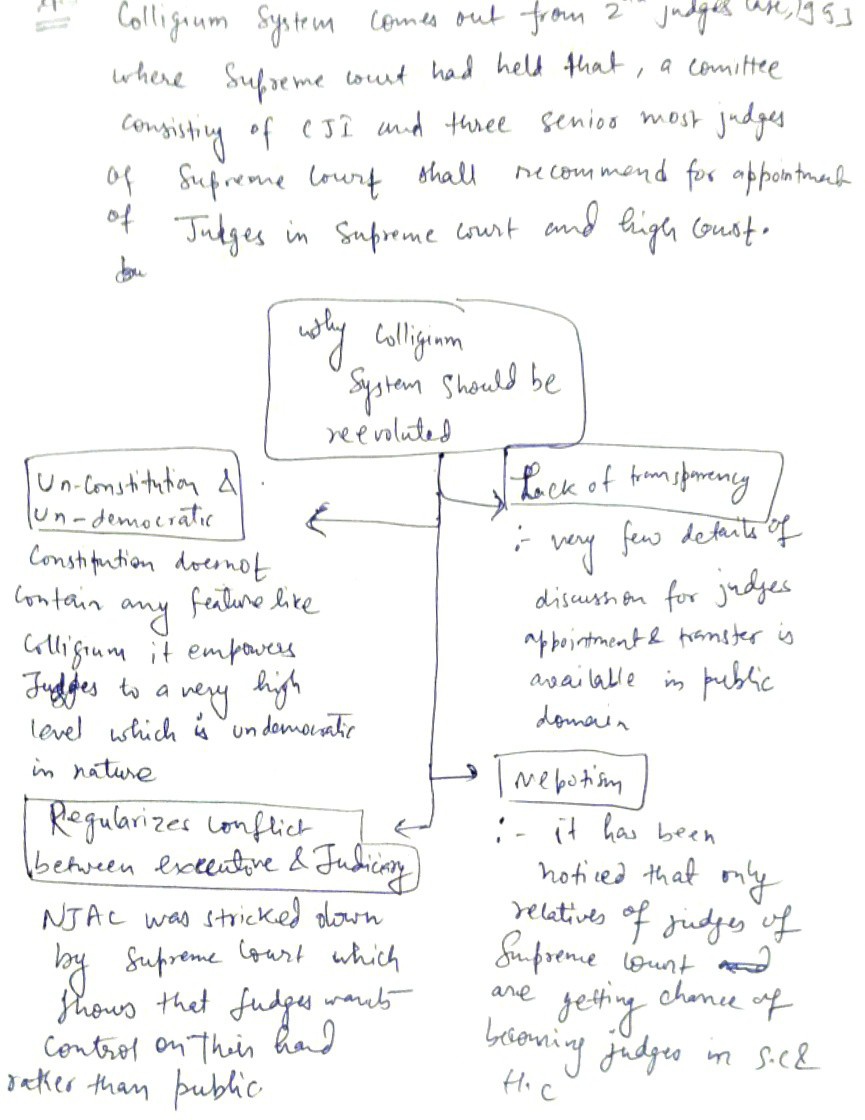 Colligium System comes out from 2nd judges case, 1993
where Supreme court had held that, a comittee
consisting of CJI and three senior most judges
of Supreme Court shall recommend for appointment
of Judges in Supreme court and high Court.
Why Colligium
System should be
reevoluted
Un-Constitution &
Un-democratic
Constitution doesnot
contain any feature like
Colligium it empowers
Judges to a very high
level which is undemocratic
in nature
Lack of transparency
:- very few details of
discussion for judges
appointment & transter is
available in public
domain
Regularizes conflict
between executive & Judiciary
NJAC was stricked down
by Supreme Court which
shows that Judges wants
control on their hand
rather than public
Nepotism
:- it has been
noticed that only
relatives of judges of
Supreme court
are getting chance of
becoming judges in S.C &
H.C